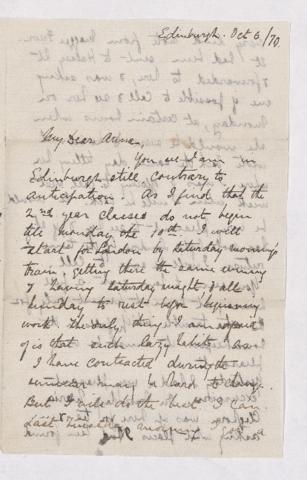 Edinburgh. Oct 6/70
My dear Anna.
You see I am in
Edinburgh still, contrary to
anticipation. As I find that the
2nd year Classes do not begin
till Monday the 10th. I will
start for London by Saturday morning
train, getting there the same evening
& having Saturday night & all
Sunday to rest before beginning
work. The only thing I am afraid
of is that such lazy habits as
I have contracted during the
summer may be hard to change.
But I will do the best I can.
Last Tuesday